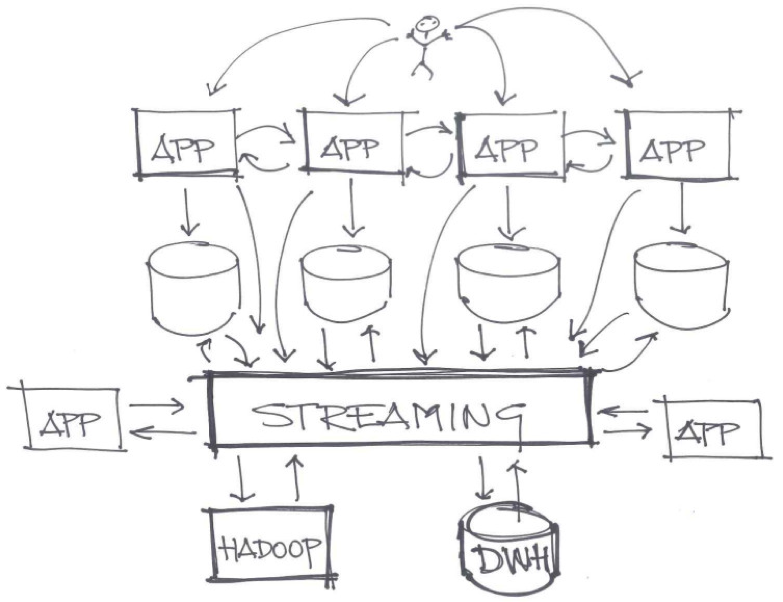 APP
APP
APP
APP
APP
STREAMING
APP
HADOOP
DWH